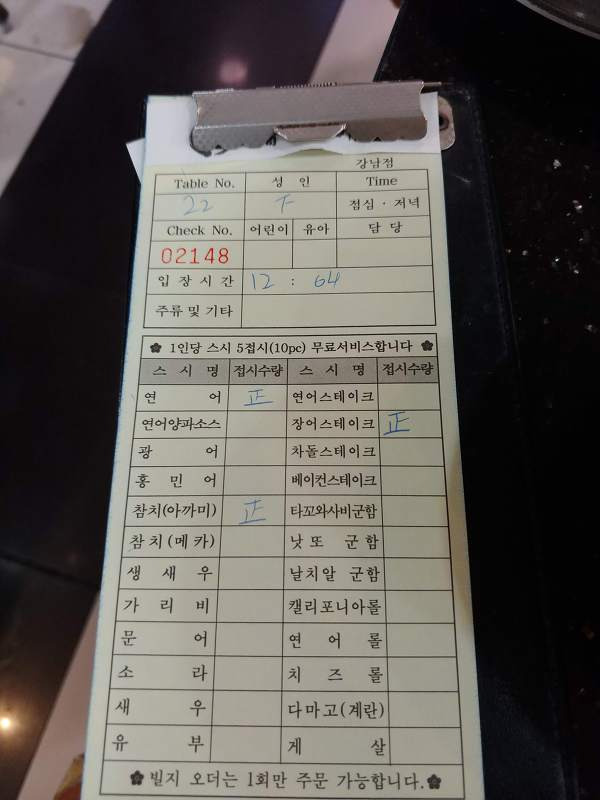 강남점
Table No. 성 인 Time
22 下 점심 · 저녁
Check No. 어린이 유아 담 당
02148
입 장 시 간 12 : 04
주류 및 기타
1인당 스시 5접시(10pc) 무료서비스합니다
스 시 명 접시수량 스 시 명 접시수량
연 어 正 연어스테이크
연어양파소스 장어스테이크 正
광 어 차돌스테이크
홍 민 어 베이컨스테이크
참치(아까미) 正 타꼬와사비군함
참 치 (메 카) 낫 또 군 함
생 새 우 날치알 군함
가 리 비 캘리포니아롤
문 어 연 어 롤
소 라 치 즈 롤
새 우 다마고(계란)
유 부 게 살
빌지 오더는 1회만 주문 가능합니다.